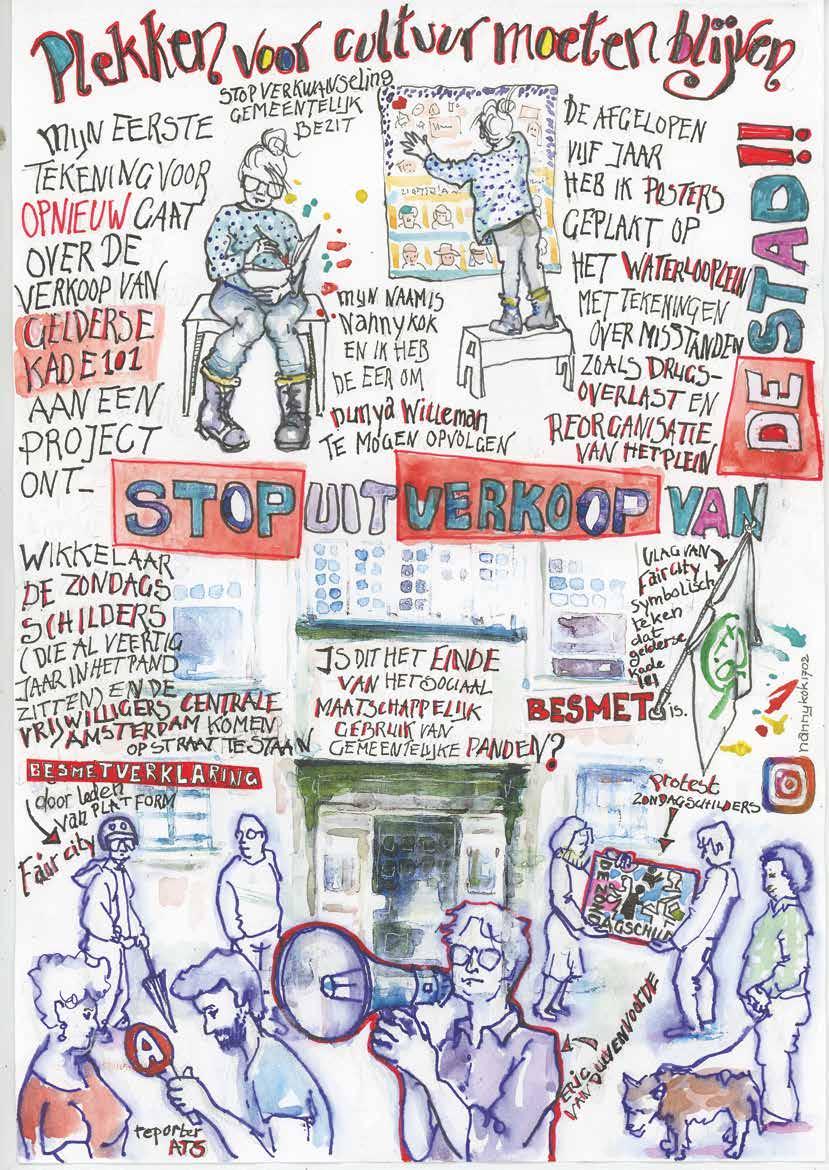 Plekken voor cultuur moeten blijven
STOP VERKWANSELING
GEMEENTELIJK
BEZIT
MIJN EERSTE
TEKENING VOOR
OPNIEUW GAAT
OVER DE
VERKOOP VAN
GELDERSE
KADE 101
AAN EEN
PROJECT
ONT-
MIJN NAAM IS
Nanny kok
EN IK HEB
DE EER OM
Dunya Willeman
TE MOGEN OPVOLGEN
DE AFGELOPEN
VIJF JAAR
HEB IK POSTERS
GEPLAKT OP
HET WATERLOOPLEIN
MET TEKENINGEN
OVER MISSTANDEN
ZOALS DRUGS-
OVERLAST EN
REORGANISATIE
VAN HET PLEIN
STOP UITVERKOOP VAN
DE STAD!!
WIKKELAAR
DE ZONDAGS
SCHILDERS
(DIE AL VEERTIG
JAAR IN HET PAND
ZITTEN) EN DE
VRIJWILLIGERS CENTRALE
AMSTERDAM KOMEN
OP STRAAT TE STAAN
IS DIT HET EINDE
VAN HET SOCIAAL
MAATSCHAPPELIJK
GEBRUIK VAN
GEMEENTELIJKE PANDEN?
VLAG VAN
Faircity
symbolisch
teken
dat
gelderse
kade
101
BESMET is.
nannykok1702
BESMETVERKLARING
door leden
van PLATFORM
Fair city
protest
ZONDAGSCHILDERS
DE ZONDAGSCHILD
A
reporter
AT5
ERIC
VAN DUIVENVOORDE